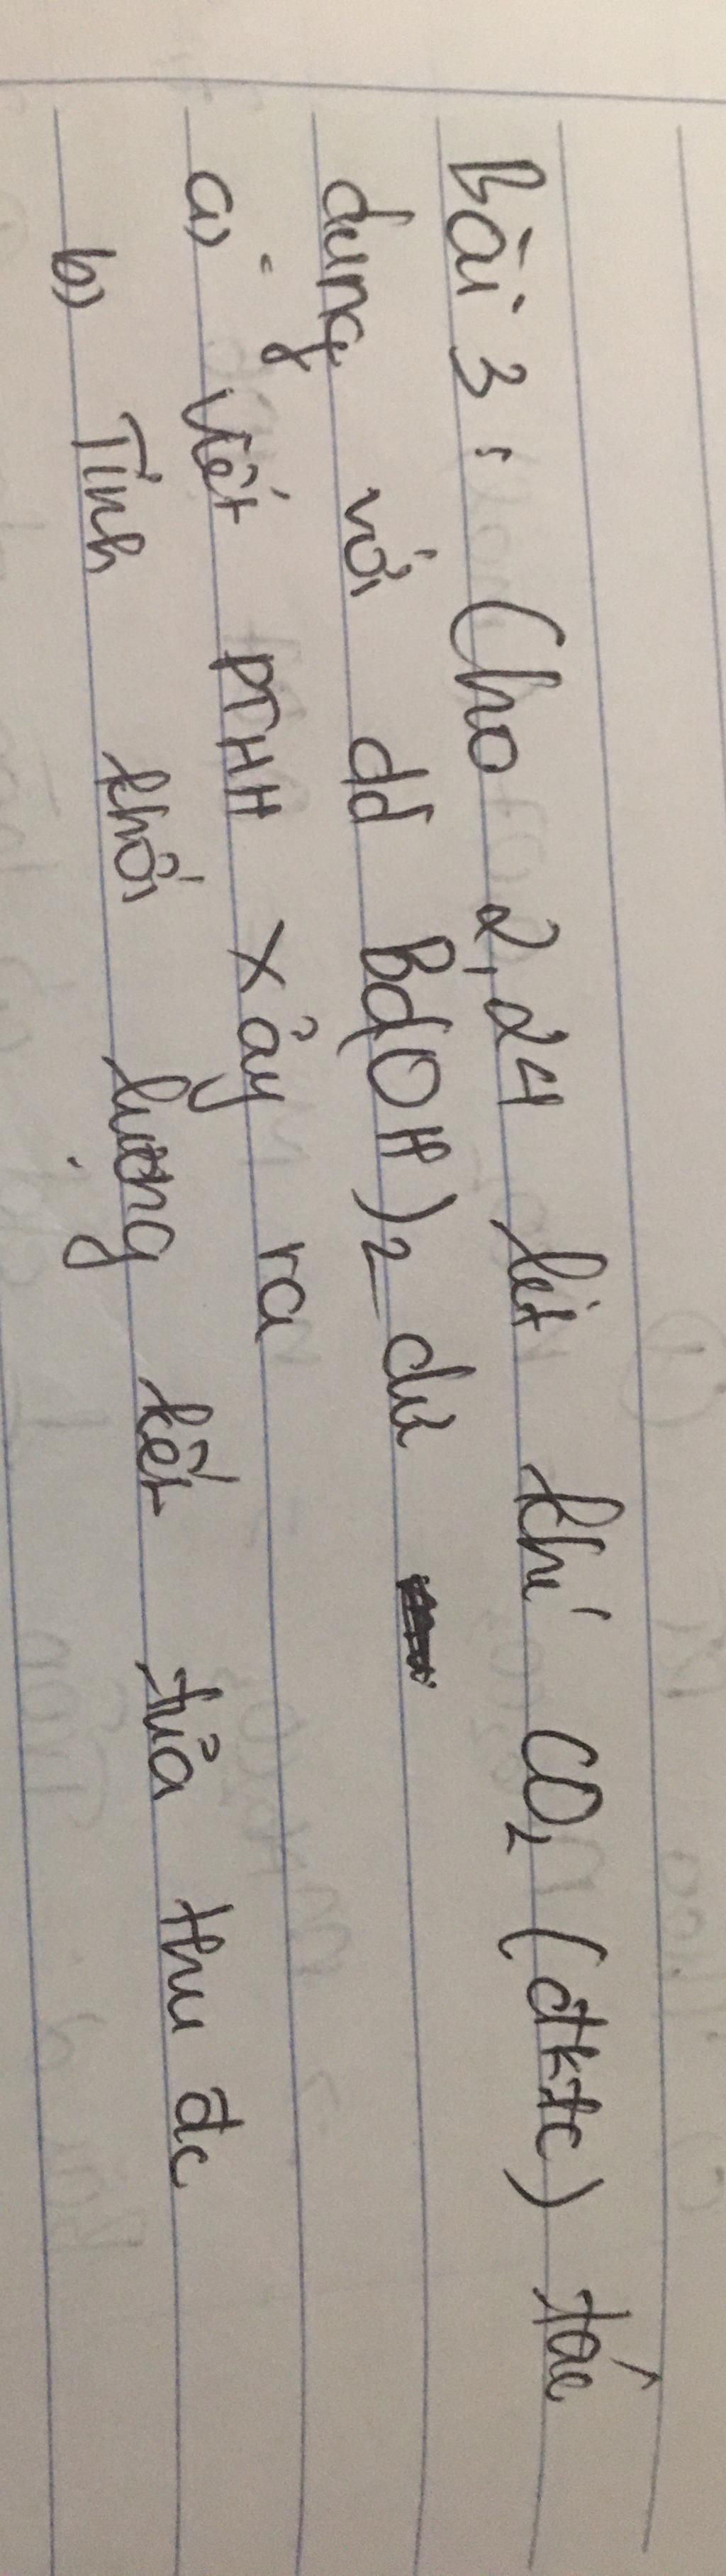 Bài 3 : Cho 2,24 lít khí CO2 (đktc) tác
dụng với dd Ba(OH)2 dư
a) Viết PTHH xảy ra
b) Tính khối lượng kết tủa thu đc